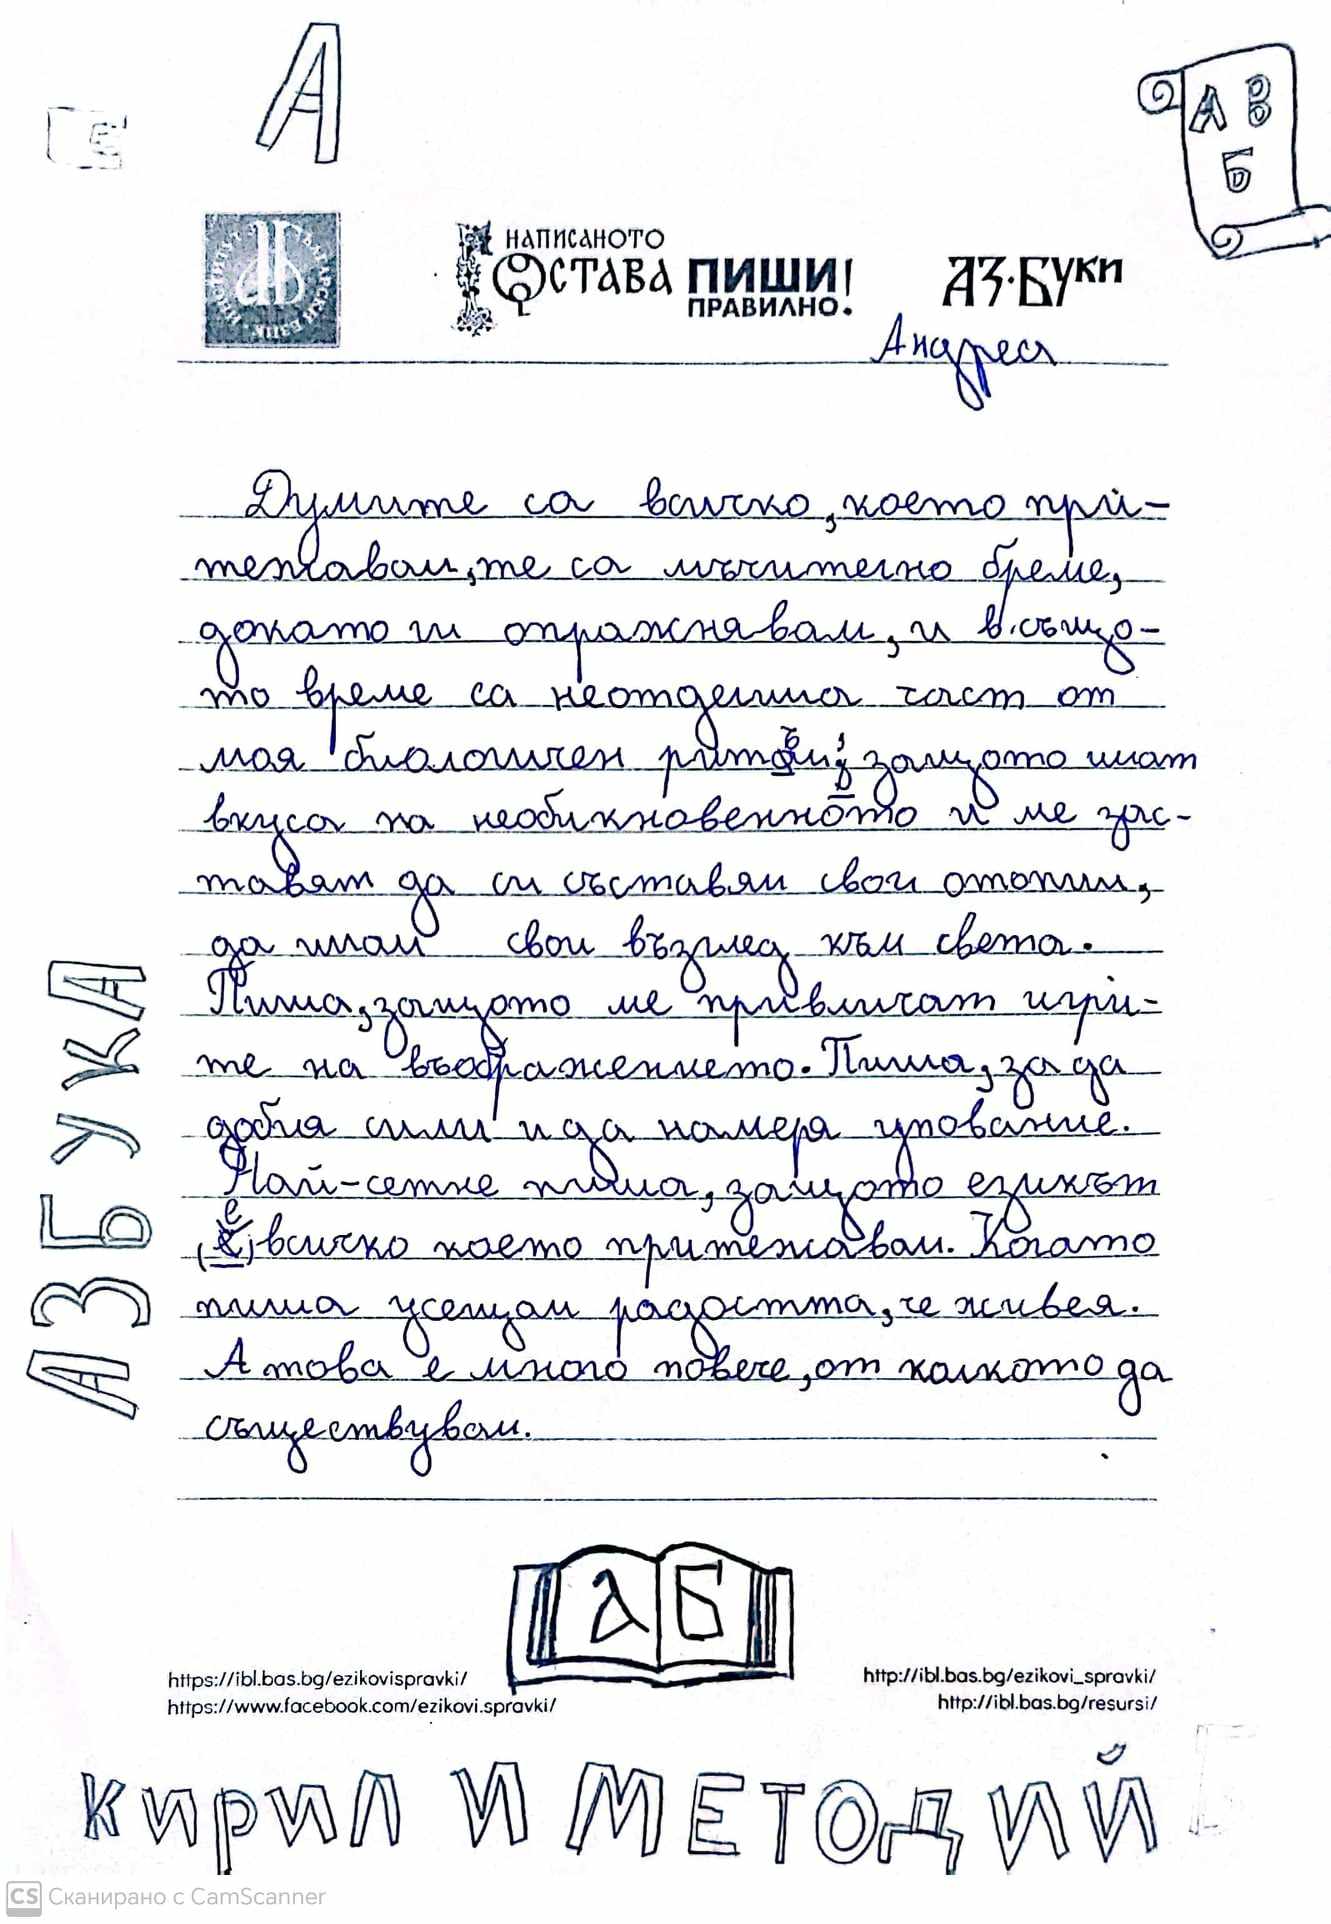 А
Е
А В
Б
ИНСТИТУТ ЗА БЪЛГАРСКИ ЕЗИК
НАПИСАНОТО
ОСТАВА ПИШИ!
ПРАВИЛНО.
АЗ·БУКИ
Андрея
Думите са всичко, което при-
тежавам, те са мъчително бреме,
докато ги упражнявам, и в също-
то време са неотделима част от
моя биологичен ритъм, защото имат
вкуса на необикновеното и ме зас-
тавят да си съставям свои отопии,
да имам свои възглед към света.
Пиша, защото ме привличат игри-
те на въображението. Пиша, за да
добия сили и да намеря упование.
Най-сетне пиша, защото езикът
(е) всичко което притежавам. Когато
пиша усещам радостта, че живея.
А това е много повече, от колкото да
съществувам.
АЗБУКА
А Б
https://ibl.bas.bg/ezikovispravki/
https://www.facebook.com/ezikovi.spravki/
http://ibl.bas.bg/ezikovi_spravki/
http://ibl.bas.bg/resursi/
кирил И МЕТОДИЙ
CS Сканирано с CamScanner